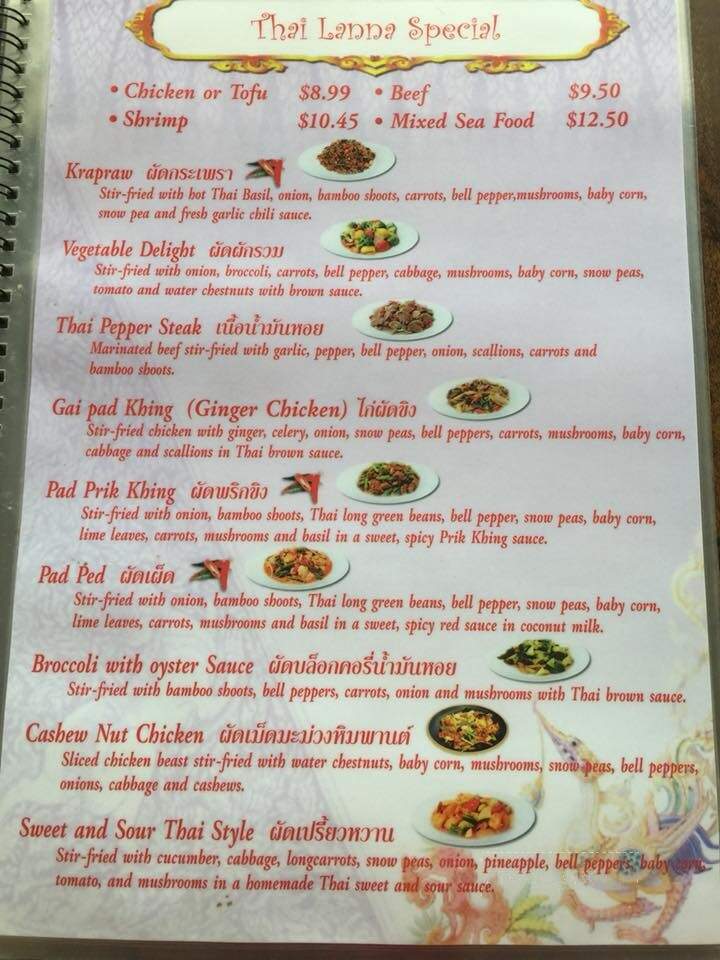 Thai Lanna Special
• Chicken or Tofu $8.99 • Beef $9.50
• Shrimp $10.45 • Mixed Sea Food $12.50
Krapraw ผัดกระเพรา
Stir-fried with hot Thai Basil, onion, bamboo shoots, carrots, bell pepper,mushrooms, baby corn,
snow pea and fresh garlic chili sauce.
Vegetable Delight ผัดผักรวม
Stir-fried with onion, broccoli, carrots, bell pepper, cabbage, mushrooms, baby corn, snow peas,
tomato and water chestnuts with brown sauce.
Thai Pepper Steak เนื้อน้ำมันหอย
Marinated beef stir-fried with garlic, pepper, bell pepper, onion, scallions, carrots and
bamboo shoots.
Gai pad Khing (Ginger Chicken) ไก่ผัดขิง
Stir-fried chicken with ginger, celery, onion, snow peas, bell peppers, carrots, mushrooms, baby corn,
cabbage and scallions in Thai brown sauce.
Pad Prik Khing ผัดพริกขิง
Stir-fried with onion, bamboo shoots, Thai long green beans, bell pepper, snow peas, baby corn,
lime leaves, carrots, mushrooms and basil in a sweet, spicy Prik Khing sauce.
Pad Ped ผัดเผ็ด
Stir-fried with onion, bamboo shoots, Thai long green beans, bell pepper, snow peas, baby corn,
lime leaves, carrots, mushrooms and basil in a sweet, spicy red sauce in coconut milk.
Broccoli with oyster Sauce ผัดบล็อกคอรี่น้ำมันหอย
Stir-fried with bamboo shoots, bell peppers, carrots, onion and mushrooms with Thai brown sauce.
Cashew Nut Chicken ผัดเม็ดมะม่วงหิมพานต์
Sliced chicken beast stir-fried with water chestnuts, baby corn, mushrooms, snow peas, bell peppers,
onions, cabbage and cashews.
Sweet and Sour Thai Style ผัดเปรี้ยวหวาน
Stir-fried with cucumber, cabbage, longcarrots, snow peas, onion, pineapple, bell peppers, baby corn,
tomato, and mushrooms in a homemade Thai sweet and sour sauce.